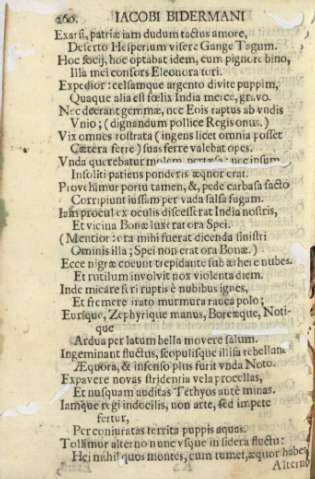 260. IACOBI BIDERMANI
Exarsi, patriæ iam dudum tactus amore,
Deserto Hesperium visere Gange Tagum.
Hoc socij, hoc optabat idem, cum pignore bino,
Illa mei consors Eleonora tori.
Expedior: celsamque argento divite puppim,
Quaque alia est fœlix India merce, gravo.
Nec deerant gemmæ, nec Eois raptus ab vndis
Vnio; (dignandum pollice Regis onus.)
Vix omnes rostrata (ingens licet omnia posset
Cætera ferre) suas ferre valebat opes.
Vnda querebatur molem nec ipsum
Insoliti patiens ponderis æquor erat.
Provehimur portu tamen, &, pede carbasa facto
Corripiunt iussam per vada salsa fugam.
Iamque procul ex oculis discesserat India nostris,
Et vicina Bonæ luxerat ora Spei.
(Mentior: ora mihi fuerat dicenda sinistri
Ominis illa; Spei non erat ora Bonæ.)
Ecce nigræ coeunt trepidante sub æthere nubes.
Et rutilum involvit nox violenta diem.
Inde micare feri ruptis è nubibus ignes,
Et fremere irato murmura rauca polo;
Eurique, Zephyrique manus, Boreæque, Noti-
que
Ardua per latum bella movere salum.
Ingeminant fluctus, scopulisque illisa rebellant
Æquora, & infenso plus furit vnda Noto.
Expavere novas stridentia vela procellas,
Et nusquam auditas Tethyos antè minas.
Iamque regi indocilis, non arte, sed impete
fertur,
Per coniuratas territa puppis aquas.
Tollimur alterno nunc vsque in sidera fluctu:
Hei mihi! quos montes, cum tumet, æquor habet
Alterno